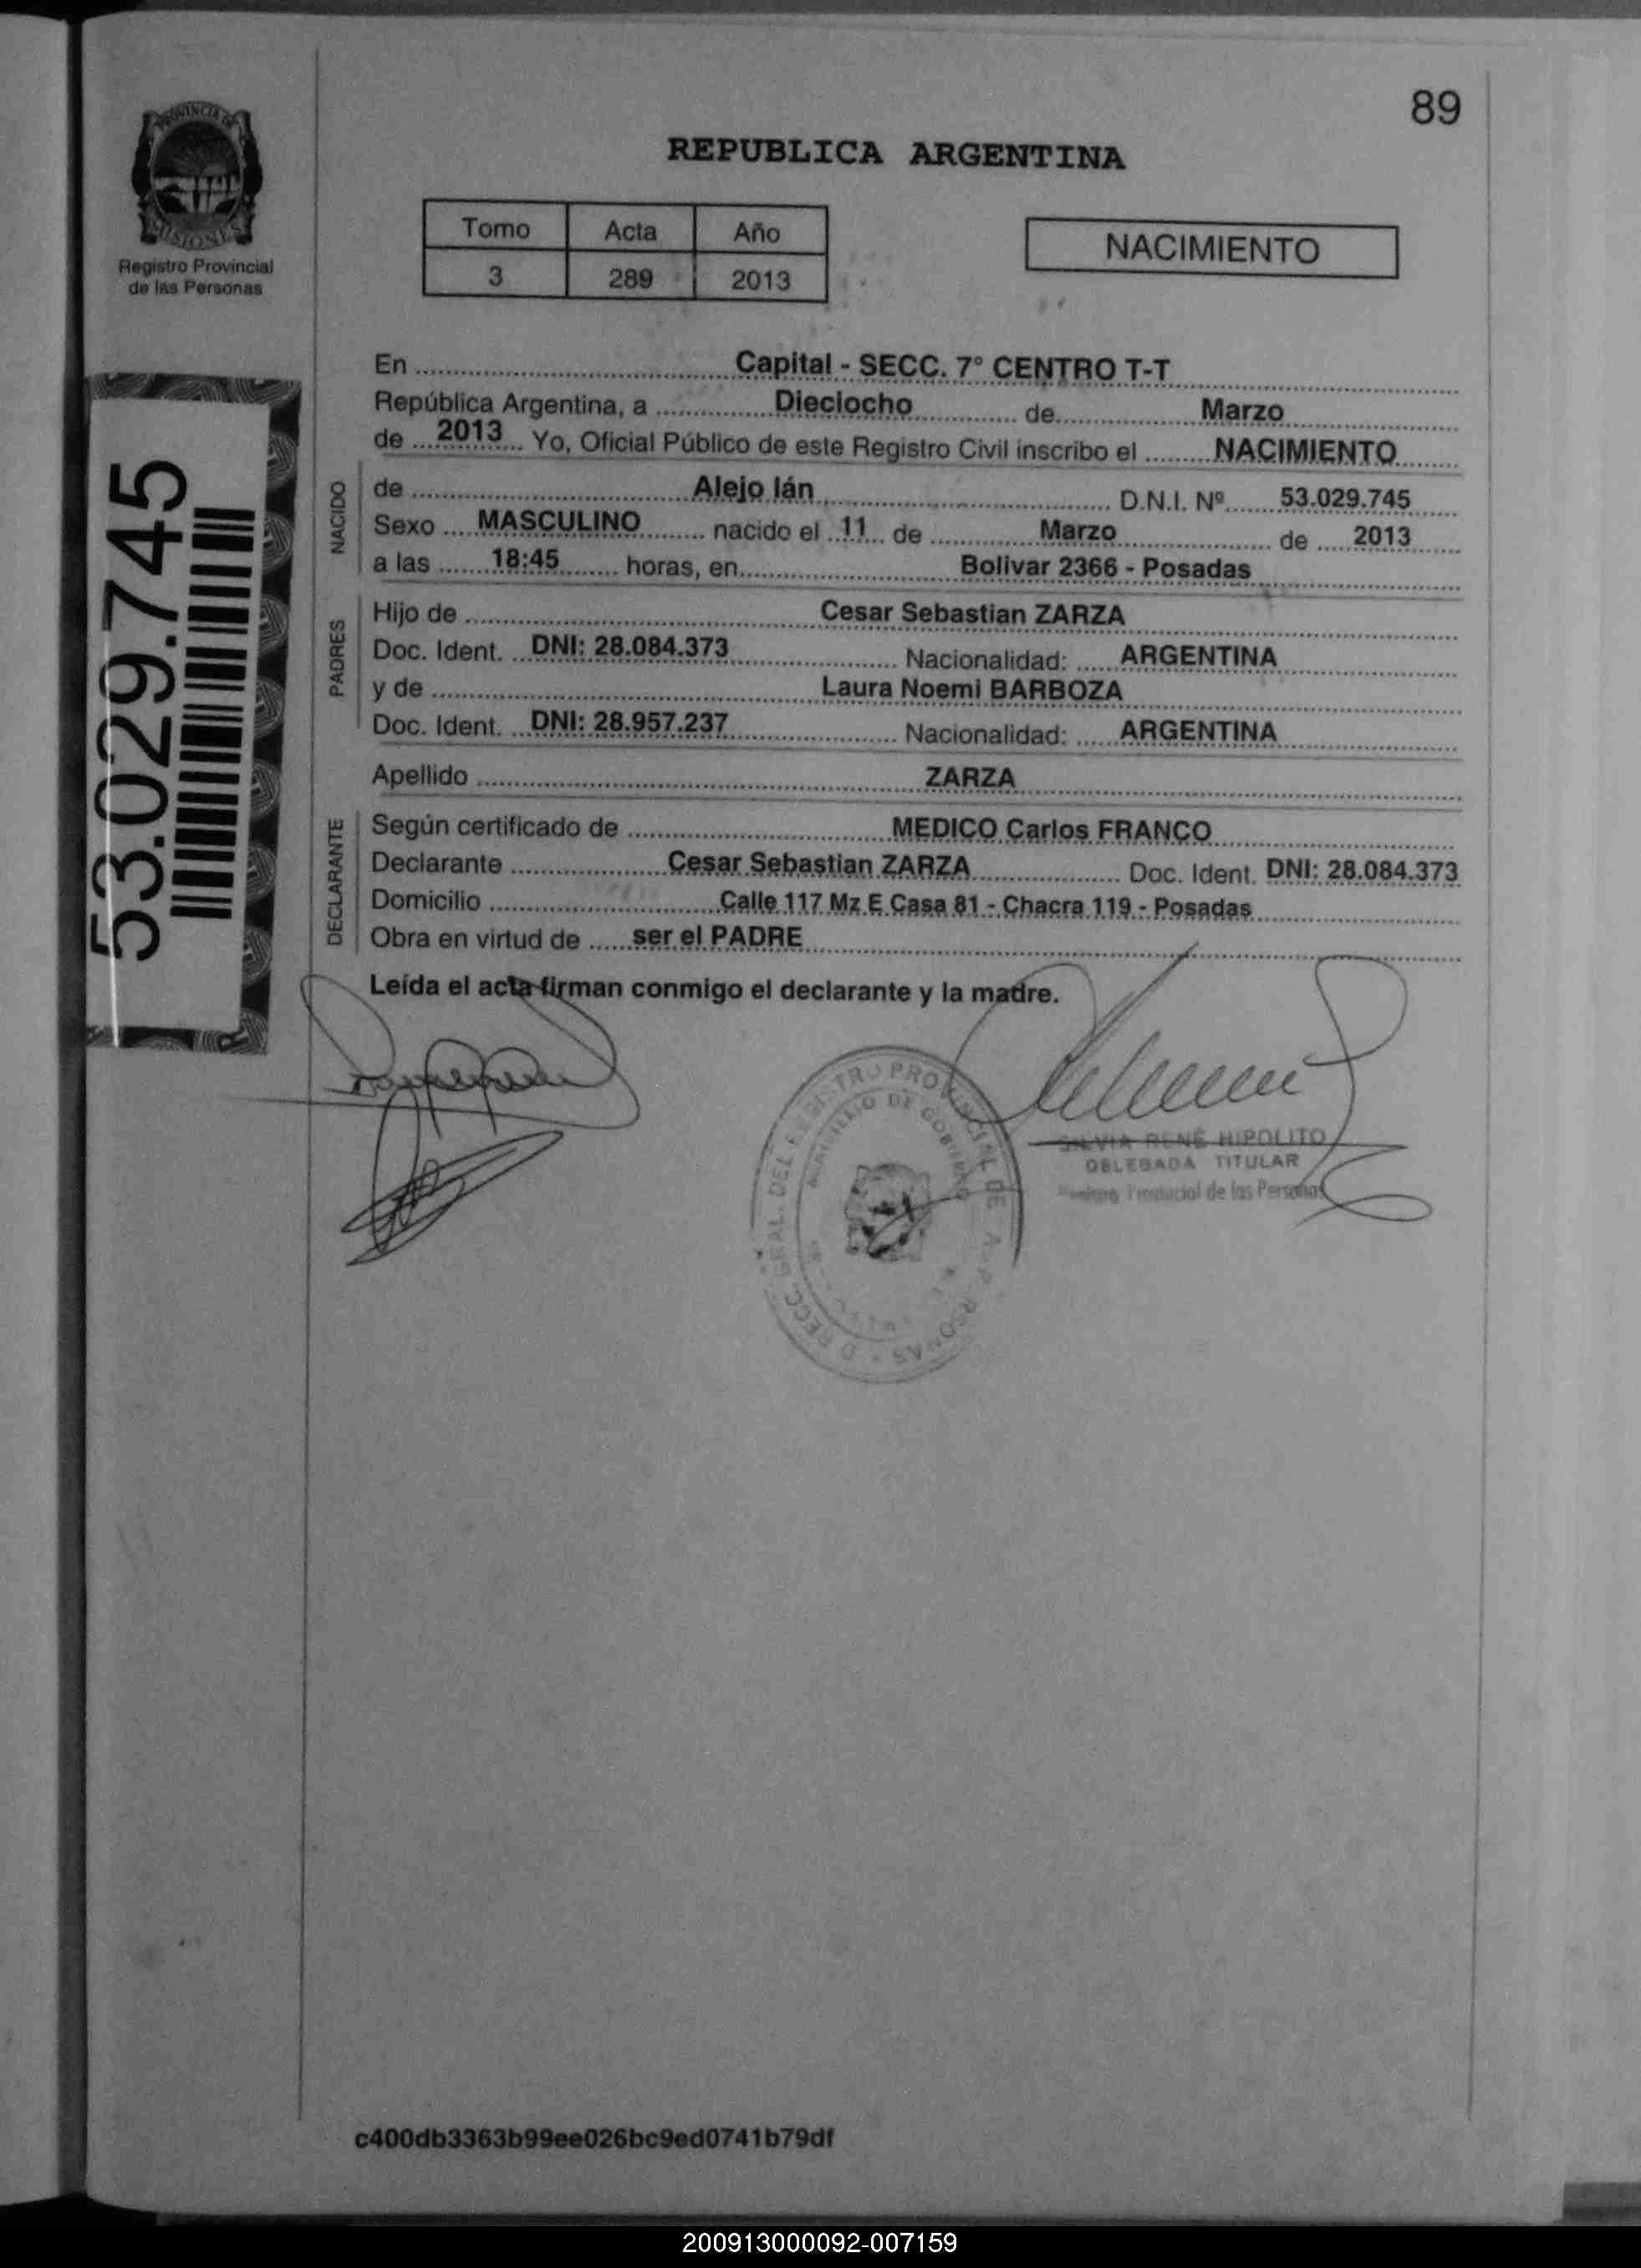 89
PROVINCIA DE
MISIONES
Registro Provincial
de las Personas
REPUBLICA ARGENTINA
Tomo Acta Año
3 289 2013
NACIMIENTO
53.029.745
En Capital - SECC. 7° CENTRO T-T
República Argentina, a Dieciocho de Marzo
de 2013 Yo, Oficial Público de este Registro Civil inscribo el NACIMIENTO
NACIDO
de Alejo Ián D.N.I. Nº 53.029.745
Sexo MASCULINO nacido el 11 de Marzo de 2013
a las 18:45 horas, en Bolivar 2366 - Posadas
PADRES
Hijo de Cesar Sebastian ZARZA
Doc. Ident. DNI: 28.084.373 Nacionalidad: ARGENTINA
y de Laura Noemi BARBOZA
Doc. Ident. DNI: 28.957.237 Nacionalidad: ARGENTINA
Apellido ZARZA
DECLARANTE
Según certificado de MEDICO Carlos FRANCO
Declarante Cesar Sebastian ZARZA Doc. Ident. DNI: 28.084.373
Domicilio Calle 117 Mz E Casa 81 - Chacra 119 - Posadas
Obra en virtud de ser el PADRE
Leída el acta firman conmigo el declarante y la madre.
SILVIA RENÉ HIPOLITO
DELEGADA TITULAR
Provincial de las Personas
c400db3363b99ee026bc9ed0741b79df
200913000092-007159